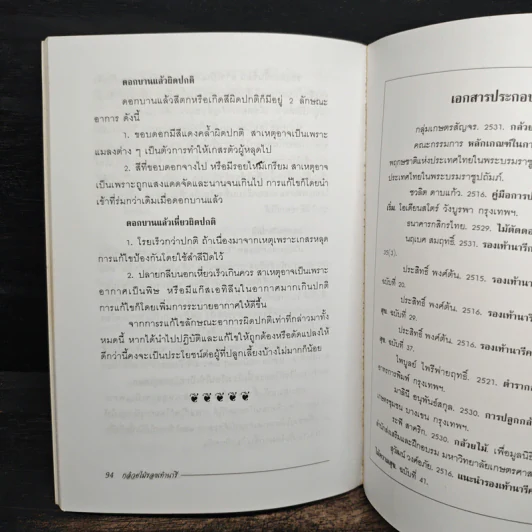 ดอกบานแล้วผิดปกติ
ดอกบานแล้วสีตกหรือเกิดสีผิดปกติก็มีอยู่ 2 ลักษณะ
อาการ ดังนี้
1. ขอบดอกมีสีแดงคล้ำผิดปกติ สาเหตุอาจเป็นเพราะ
แมลงต่าง ๆ เป็นตัวการทำให้เกสรตัวผู้หลุดไป
2. สีที่ขอบดอกจางไป หรือมีรอยไหม้เกรียม สาเหตุอาจ
เป็นเพราะถูกแสงแดดจัดและนานจนเกินไป การแก้ไขก็โดยนำ
เข้าที่ร่มกว่าเดิมเมื่อดอกบานแล้ว
ดอกบานแล้วเหี่ยวผิดปกติ
1. โรยเร็วกว่าปกติ ถ้าเนื่องมาจากเหตุเพราะเกสรหลุด
การแก้ไขป้องกันโดยใช้สำลีปิดไว้
2. ปลายกลีบนอกเหี่ยวเร็วเกินควร สาเหตุอาจเป็นเพราะ
อากาศเป็นพิษ หรือมีแก๊สเอทิลีนในอากาศมากเกินปกติ
การแก้ไขก็โดยเพิ่มการระบายอากาศให้ดีขึ้น
จากการแก้ไขลักษณะอาการผิดปกติเท่าที่กล่าวมาทั้ง
หมดนี้ หากได้นำไปปฏิบัติและแก้ไขให้ถูกต้องหรือดัดแปลงให้
ดีกว่านี้คงจะเป็นประโยชน์ต่อผู้ที่ปลูกเลี้ยงบ้างไม่มากก็น้อย
94 กล้วยไม้รองเท้านารี
เอกสารประกอบ
กลุ่มเกษตรสัญจร. 2531. กล้วย
คณะกรรมการ หลักเกณฑ์ในกา
พฤกษชาติแห่งประเทศไทยในพระบรมรา
ประเทศไทยในพระบรมราชูปถัมภ์.
ชวลิต ดาบแก้ว. 2516. คู่มือการป
เริ่ม โอเดียนสโตร์ วังบูรพา กรุงเทพฯ.
ธนาคารกสิกรไทย. 2529. ไม้ตัดดอ
นฤเบศ สมฤทธิ์. 2531. รองเท้านารีก
15(3).
ประสิทธิ์ พงศ์ตัน. 2515. รองเท้านารี
ฉบับที่ 20.
ประสิทธิ์ พงศ์ตัน. 2516. รองเท้านารี
สุข ฉบับที่ 29.
ประสิทธิ์ พงศ์ตัน. 2516. รองเท้านารี
สุข ฉบับที่ 37.
ไพบูลย์ ไพรีพ่ายฤทธิ์. 2521. ตำราก
การพิมพ์ กรุงเทพฯ.
มาลินี อนุพันธ์สกุล. 2530. การปลูกกล้
บางเขน กรุงเทพฯ.
ระพี สาคริก. 2530. กล้วยไม้. เพื่อมูลนิธิ
สำนักส่งเสริมและฝึกอบรม มหาวิทยาลัยเกษตรศาส
2516. แนะนำรองเท้านารี
ฉบับที่ 47.